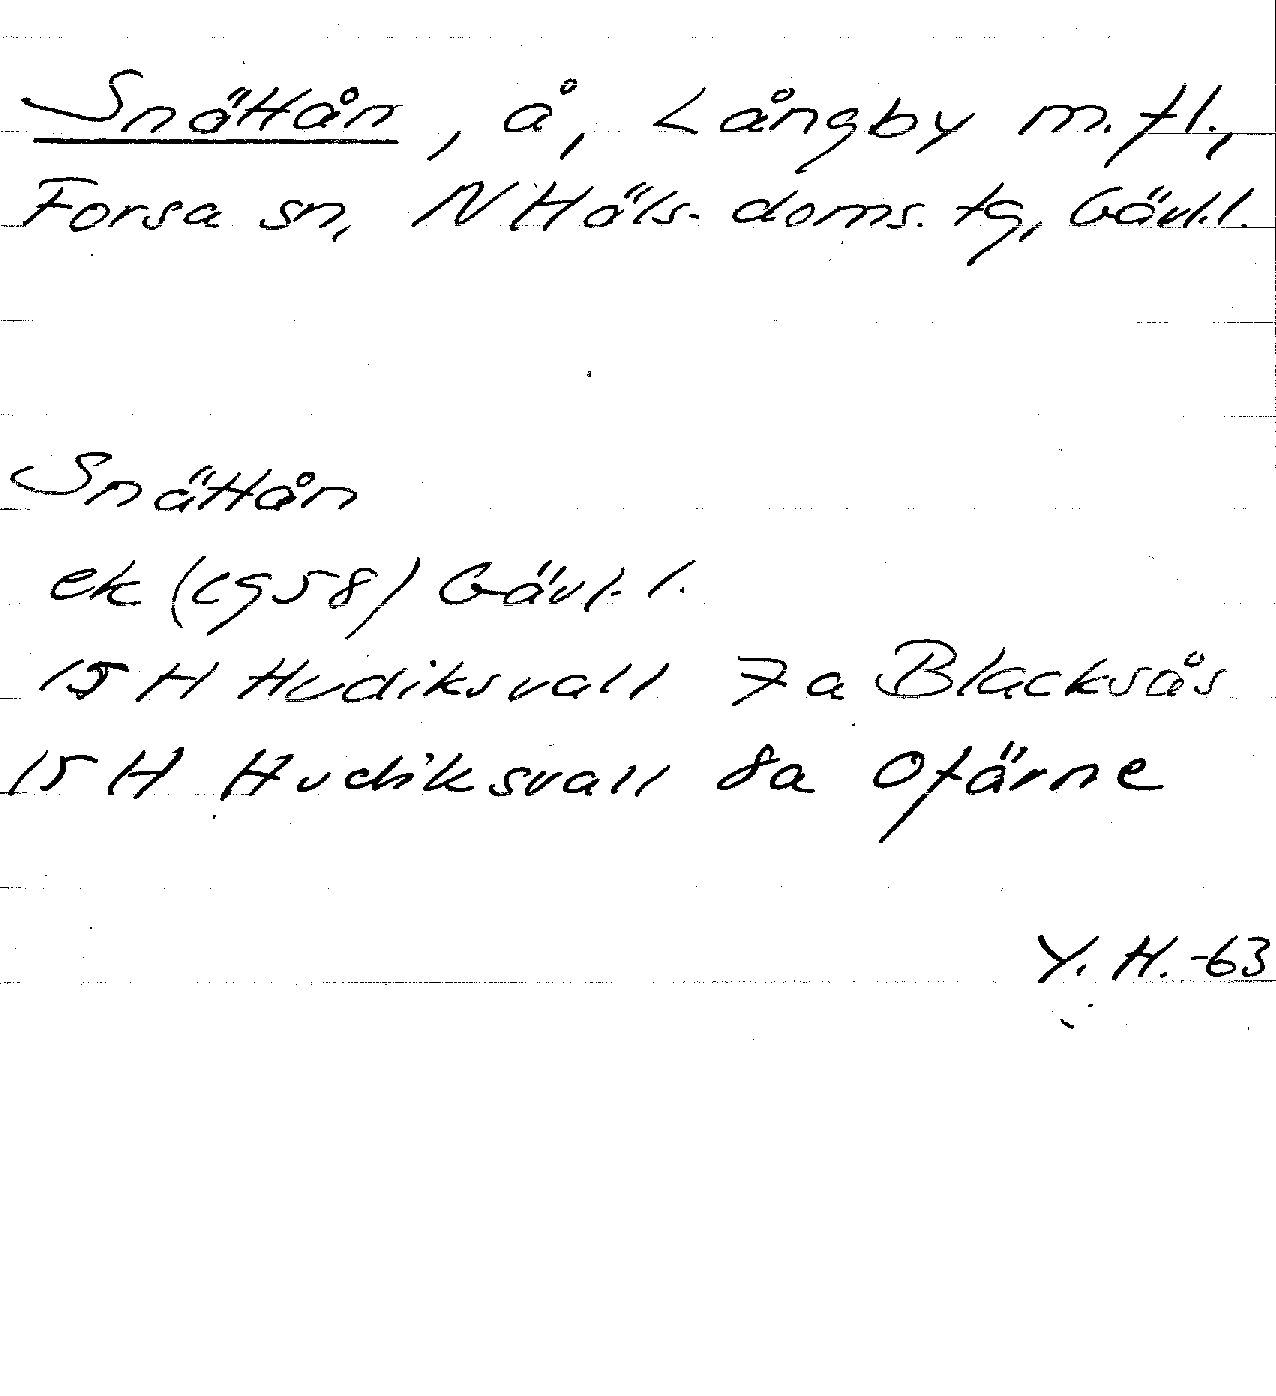 Snättån, å, Långby m.fl.,
Forsa sn, N Häls. doms. tg, Gävl.l.
Snättån
ek (1958) Gävl. l.
15 H Hudiksvall 7a Blacksås
15 H Hudiksvall 8a Ofärne
Y. H. -63